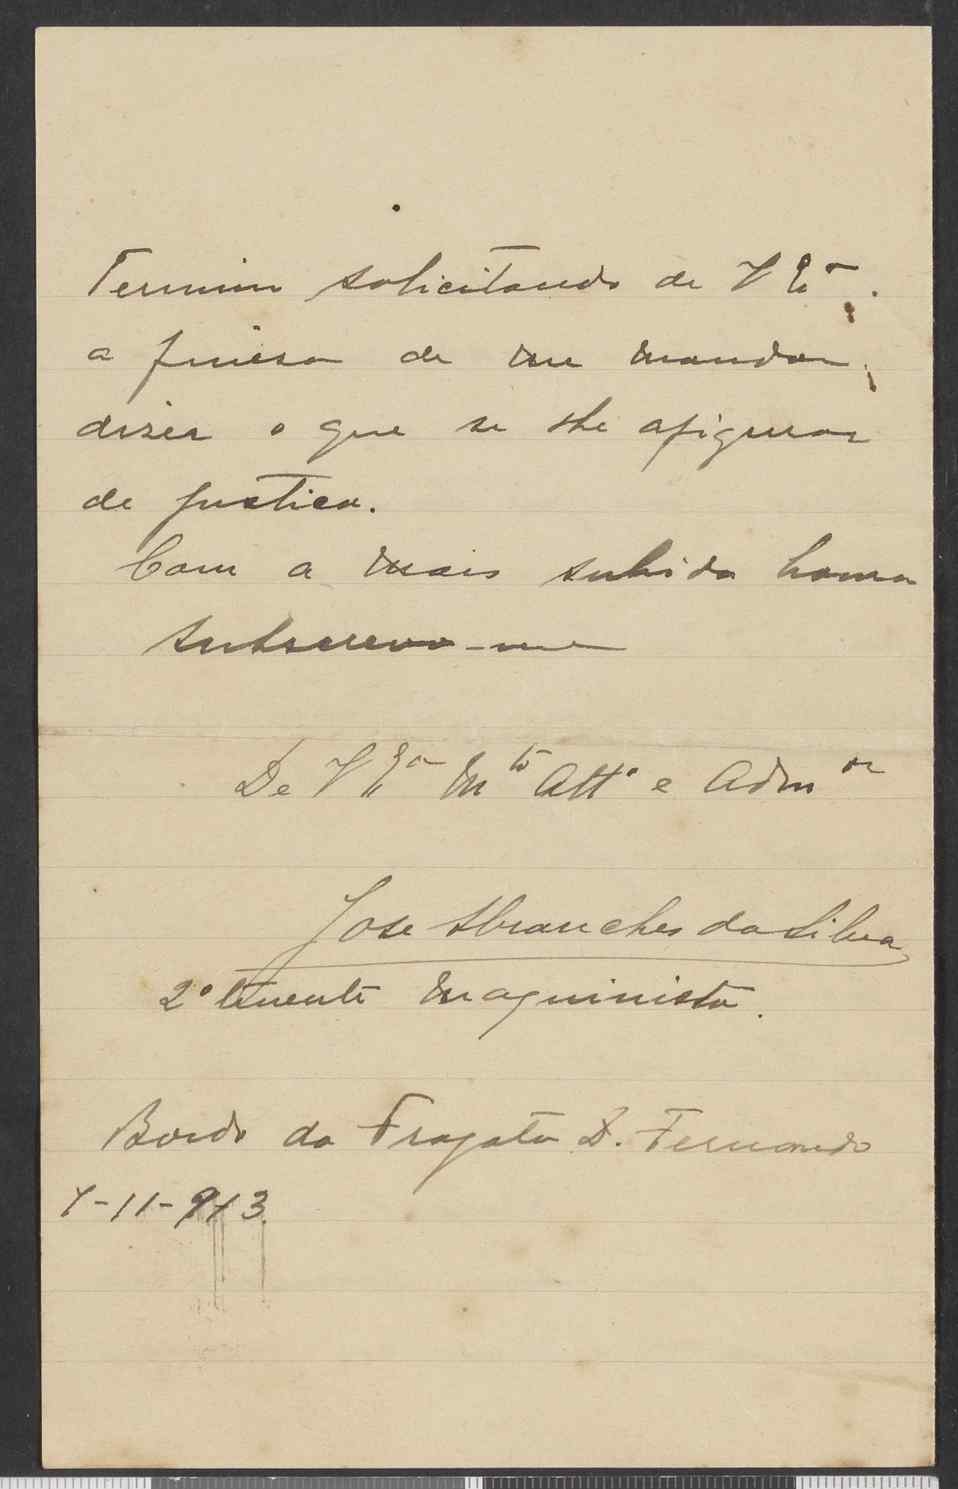 Termino solicitando de V Exª.
a fineza de me mandar
dizer o que se lhe afigurar
de justica.
Com a mais subida honra
subscrevo-me
De V Exª Mtº Attº e Admºr
Jose Abranches da Silva
2º tenente maquinista.
Bordo da Fragata D. Fernando
7-11-913.